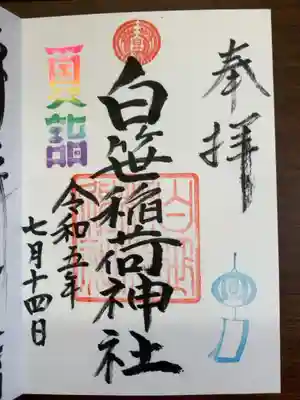 奉拝
白笹稲荷神社
令和五年
七月十四日
夏詣